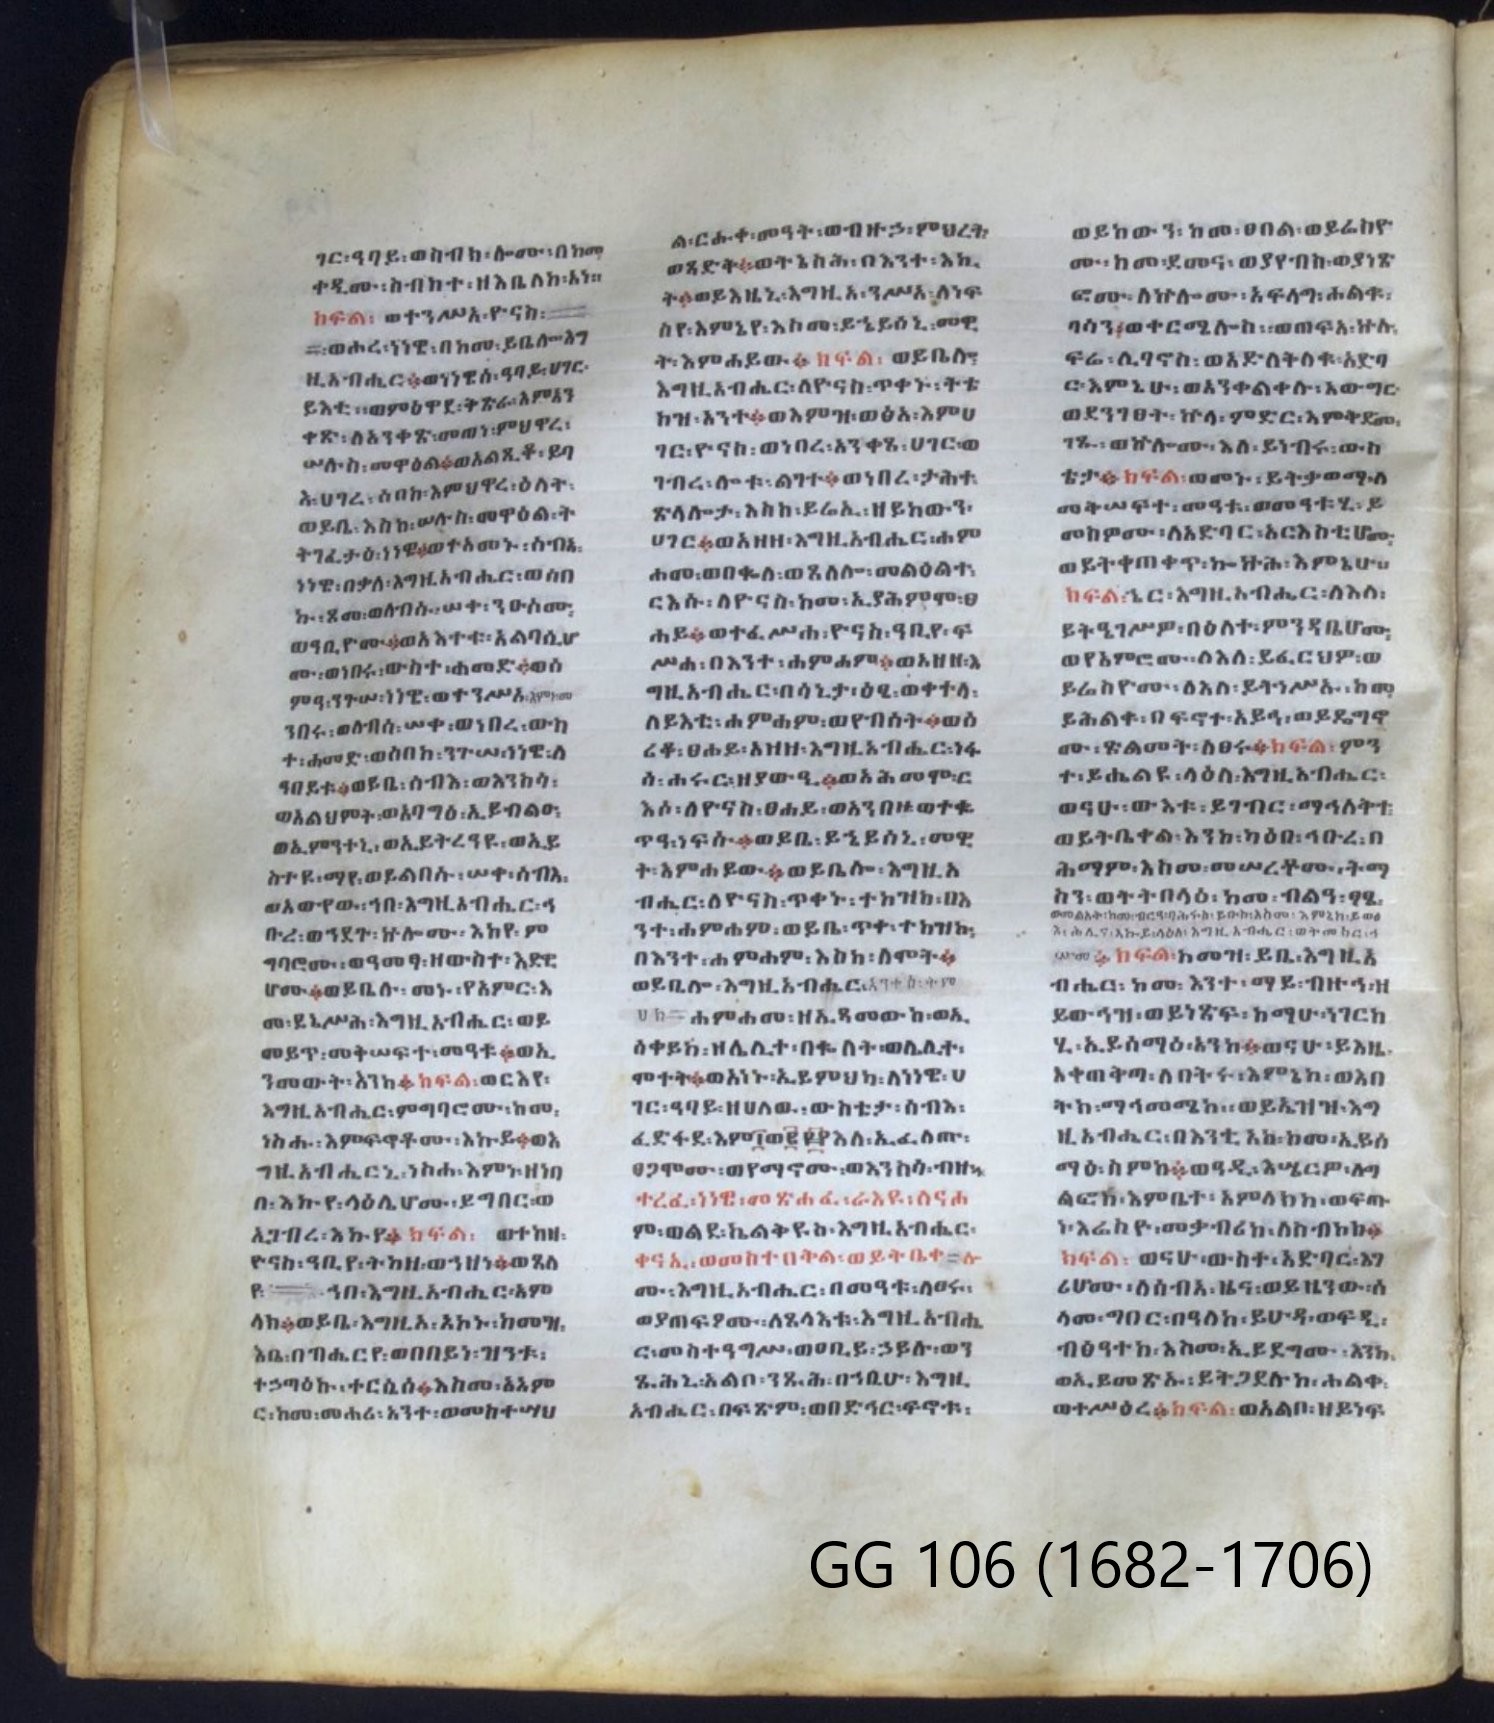 ገር፡ዓባይ፡ወስብክ፡ሎሙ፡በከመ
ተዲሙ፡ስብከተ፡ዘእቤለከ፡አነ።
ክፍል፡ ወተንሥአ፡ዮናስ፡
ወሖረ፡ነነዌ፡በከመ፡ይቤሎ፡እግ
ዚአብሔር፡ወነነዌሰ፡ዓባይ፡ሀገር፡
ይእቲ፡፡ወምዕዋደ፡ትጽራ፡እምአን
ቀጽ፡ለአንቀጽ፡መጠነ፡ምህዋረ፡
ሠሉስ፡መዋዕል፡ወአልጺቆ፡ይባ
እ፡ሀገረ፡ሰበከ፡እምህዋረ፡ዕለት፡
ወይቤ፡እስከ፡ሠሉስ፡መዋዕል፡ት
ትገፈታዕ፡ነነዌ፡ወተአመኑ፡ሰብአ፡
ነነዌ፡በቃለ፡እግዚአብሔር፡ወሰበ
ኩ፡ጾመ፡ወለብሱ፡ሠቀ፡ንዑሶሙ፡
ወዓቢዮሙ፡ወአእተቱ፡አልባሲሆ
ሙ፡ወነበሩ፡ውስተ፡ሐመድ፡ወሰ
ምዓ፡ንጉሠ፡ነነዌ፡ወተንሥአ፡እምነ፡መ
ንበሩ፡ወለብሰ፡ሠቀ፡ወነበረ፡ውስ
ተ፡ሐመድ፡ወሰበከ፡ንጉሠ፡ነነዌ፡ለ
ዓበይቱ፡ወይቤ፡ሰብእ፡ወእንስሳ፡
ወአልህምት፡ወአባግዕ፡ኢይብልዑ፡
ወኢምንተኒ፡ወኢይትረዓዩ፡ወኢይ
ስተዩ፡ማየ፡ወይልበሱ፡ሠቀ፡ሰብእ፡
ወአውየው፡ኀበ፡እግዚአብሔር፡ኅ
ቡረ፡ወኀደጉ፡ኵሎሙ፡እከየ፡ም
ግባሮሙ፡ወዓመፃ፡ዘውስተ፡እደዊ
ሆሙ፡ወይቤሉ፡መኑ፡የአምር፡እ
መ፡ይኔሥሕ፡እግዚአብሔር፡ወይ
መይጥ፡መቅሠፍተ፡መዓቱ፡ወኢ
ንመውት፡እንከ፡ክፍል፡ወርእየ፡
እግዚአብሔር፡ምግባሮሙ፡ከመ፡
ነስሑ፡እምፍኖቶሙ፡እኩይ፡ወእ
ግዚአብሔርኒ፡ነስሐ፡እምነ፡ዘነበ
በ፡እኩየ፡ላዕሌሆሙ፡ይግበር፡ወ
ኢገብረ፡እኩየ፡ክፍል፡ ወተከዘ፡
ዮናስ፡ዓቢየ፡ትካዘ፡ወኀዘነ፡ወጸለ
የ፡ ኀበ፡እግዚአብሔር፡አም
ላክ፡ወይቤ፡እግዚእ፡አኮኑ፡ከመዝ፡
እቤ፡በብሔርየ፡ወበበይነ፡ዝንቱ፡
ተኃጣዕኩ፡ተርሴስ፡እስመ፡አአም
ር፡ከመ፡መሐሪ፡አንተ፡ወመስተሣህ
ል፡ርሑቀ፡መዓት፡ወብዙኃ፡ምህረት፡
ወጻድቅ፡ወትኔስሕ፡በእንተ፡እኪ
ት፡ወይእዜኒ፡እግዚእ፡ንሥአ፡ለነፍ
ስየ፡እምኔየ፡እስመ፡ይኄይሰኒ፡መዊ
ት፡እምሐይው፡ክፍል፡ ወይቤሎ፡
እግዚአብሔር፡ለዮናስ፡ጥቀኑ፡ትቴ
ክዝ፡አንተ፡ወእምዝ፡ወፅአ፡እምሀ
ገር፡ዮናስ፡ወነበረ፡አንቀጸ፡ሀገር፡ወ
ገብረ፡ሎቱ፡ልገተ፡ወነበረ፡ታሕተ፡
ጽላሎታ፡እስከ፡ይሬኢ፡ዘይከውን፡
ሀገር፡ወአዘዘ፡እግዚአብሔር፡ሐም
ሐመ፡ወበቈለ፡ወጸለሎ፡መልዕልተ፡
ርእሱ፡ለዮናስ፡ከመ፡ኢያሕምሞ፡ፀ
ሐይ፡ወተፈሥሐ፡ዮናስ፡ዓቢየ፡ፍ
ሥሐ፡በእንተ፡ሐምሐም፡ወአዘዘ፡እ
ግዚአብሔር፡በሳኒታ፡ዕፄ፡ወቀተላ፡
ለይእቲ፡ሐምሐም፡ወየብሰት፡ወሰ
ረቆ፡ፀሐይ፡አዘዘ፡እግዚአብሔር፡ነፋ
ሰ፡ሐሩር፡ዘያውዒ፡ወአሕመሞ፡ር
እሶ፡ለዮናስ፡ፀሐይ፡ወአንበዘ፡ወተቈ
ጥዓ፡ነፍሱ፡ወይቤ፡ይኄይሰኒ፡መዊ
ት፡እምሐይው፡ወይቤሎ፡እግዚአ
ብሔር፡ለዮናስ፡ጥቀኑ፡ተከዝከ፡በእ
ንተ፡ሐምሐም፡ወይቤ፡ጥቀ፡ተከዝኩ፡
በእንተ፡ሐምሐም፡እስከ፡ለሞት፡
ወይቤሎ፡እግዚአብሔር፡አንተሰ፡ትም
ህክ ሐምሐመ፡ዘኢጻመውከ፡ወኢ
ሐቀይከ፡ዘሌሊተ፡በቈለት፡ወሌሊተ፡
ሞተት፡ወአነኑ፡ኢይምህካ፡ለነነዌ፡ሀ
ገር፡ዓባይ፡ዘሀለው፡ውስቴታ፡ሰብእ፡
ፈድፋደ፡እም፲ወ፪፼እለ፡ኢፈለጡ፡
ፀጋሞሙ፡ወየማኖሙ፡ወእንስሳ፡ብዙኅ
ተረፈ፡ነነዌ፡መጽሐፈ፡ራእዩ፡ለናሖ
ም፡ወልደ፡ኬልቅዩስ፡እግዚአብሔር፡
ቀናኢ፡ወመስተበቅል፡ወይትቤቀሎ
ሙ፡እግዚአብሔር፡በመዓቱ፡ለፀሩ፡
ወያጠፍኦሙ፡ለጸላእቱ፡እግዚአብሔ
ር፡መስተዓግሥ፡ወዐቢይ፡ኃይሉ፡ወን
ጹሕኒ፡አልቦ፡ንጹሕ፡በኀቤሁ፡እግዚ
አብሔር፡በፍጽም፡ወበድልቅልቅ፡ፍኖቱ፡
ወይከውን፡ከመ፡ፀበል፡ወይሬስዮ
ሙ፡ከመ፡ደመና፡ወያየብስ፡ወያነጽ
ፎሙ፡ለኵሎሙ፡አፍላግ፡ሐልቁ፡
ባሳን፡ወቀርሜሎስ፡ወጠፍአ፡ኵሉ፡
ፍሬ፡ሊባኖስ፡ወአድለቅለቁ፡አድባ
ር፡እምኔሁ፡ወአንቀልቀሉ፡አውግር፡
ወደንገፀት፡ኵላ፡ምድር፡እምቅድመ፡
ገጹ፡ወኵሎሙ፡እለ፡ይነብሩ፡ውስ
ቴታ፡ክፍል፡ወመኑ፡ይትቃወማ፡ለ
መቅሠፍተ፡መዓቱ፡ወመዓቱሂ፡ይ
መስዎሙ፡ለአድባር፡አርእስቲሆሙ፡
ወይትቀጠቀጥ፡ኰኵሕ፡እምኔሁ።
ክፍል፡ኄር፡እግዚአብሔር፡ለእለ፡
ይትዔገሥዎ፡በዕለተ፡ምንዳቤሆሙ፡
ወየአምሮሙ፡ለእለ፡ይፈርህዎ፡ወ
ይሬስዮሙ፡ለእለ፡ይትነሥኡ፡ከመ
ይሕልቁ፡በፍኖተ፡አይኅ፡ወይዴግኖ
ሙ፡ጽልመት፡ለፀሩ፡ክፍል፡ምን
ተ፡ይሔልዩ፡ላዕለ፡እግዚአብሔር፡
ወናሁ፡ውእቱ፡ይገብር፡ማኅለቅተ፡
ወይትቤቀል፡እንከ፡ካዕበ፡ኅቡረ፡በ
ሕማም፡እስመ፡መሠረቶሙ፡ትማ
ስን፡ወትትበላዕ፡ከመ፡ብልዓ፡ፃፄ፡
ክፍል፡ከመዝ፡ይቤ፡እግዚአ
ብሔር፡ከመ፡እንተ፡ማይ፡ብዙኅ፡ዘ
ይውኅዝ፡ወይነጽፍ፡ከማሁ፡ነገርከ
ሂ፡ኢይሰማዕ፡እንከ፡ወናሁ፡ይእዜ፡
እቀጠቅጣ፡ለበትሩ፡እምኔከ፡ወእበ
ትክ፡ማኅመሜከ፡፡ወይኤዝዝ፡እግ
ዚአብሔር፡በእንቲአከ፡ከመ፡ኢይሰ
ማዕ፡ስምከ፡ወዓዲ፡እሤርዎ፡ለግ
ልፎከ፡እምቤተ፡አምላክከ፡ወፍጡ
ነ፡እሬስዮ፡መቃብሪከ፡ለስብኮከ፡
ክፍል፡ ወናሁ፡ውስተ፡አድባር፡እገ
ሪሆሙ፡ለሰብአ፡ዜና፡ወይዜንው፡ሰ
ላመ፡ግበር፡በዓለከ፡ይሁዳ፡ወፍዲ፡
ብፅዓተከ፡እስመ፡ኢይደግሙ፡እንከ፡
ወኢይመጽኡ፡ይትጋደሉከ፡ሐልቀ፡
ወተሥዕረ፡ክፍል፡ወአልቦ፡ዘይነፍ